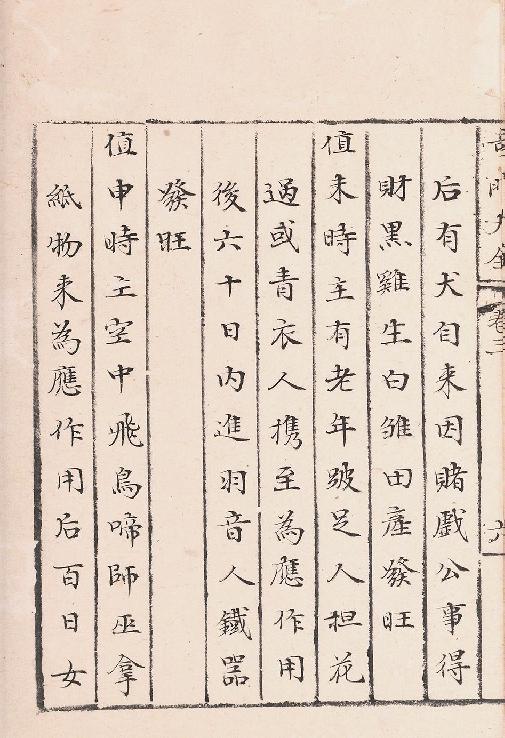 奇門大全 卷三 六
后有犬自来因賭戲公事得
財黒雞生白雏田産發旺
值未時主有老年跛足人担花
過或青衣人携至為應作用
後六十日内進羽音人鐡器
發旺
值申時主空中飛鳥啼師巫拿
紙物来為應作用后百日女